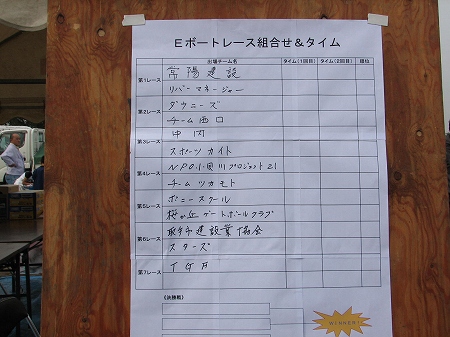 Eボートレース組合せ&タイム
出場チーム名 タイム(1回目) タイム(2回目) 順位
第1レース 常陽建設
リバーマネージャー
第2レース ダウニーズ
チーム西口
第3レース 中内
スポーツカイト
第4レース NPO小貝川プロジェクト21
チームツカモト
第5レース ポニースクール
桜が丘ゲートボールクラブ
第6レース 取手市建設業協会
スターズ
第7レース
《決勝戦》
WINNER!!